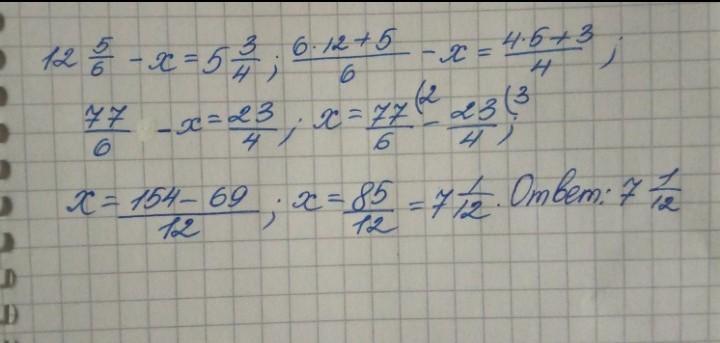 12 5/6 - x = 5 3/4 ; (6·12+5)/6 - x = (4·5+3)/4 ;
77/6 - x = 23/4 ; x = 77/6 (2 - 23/4 (3 ;
x = (154-69)/12 ; x = 85/12 = 7 1/12 . Ответ: 7 1/12